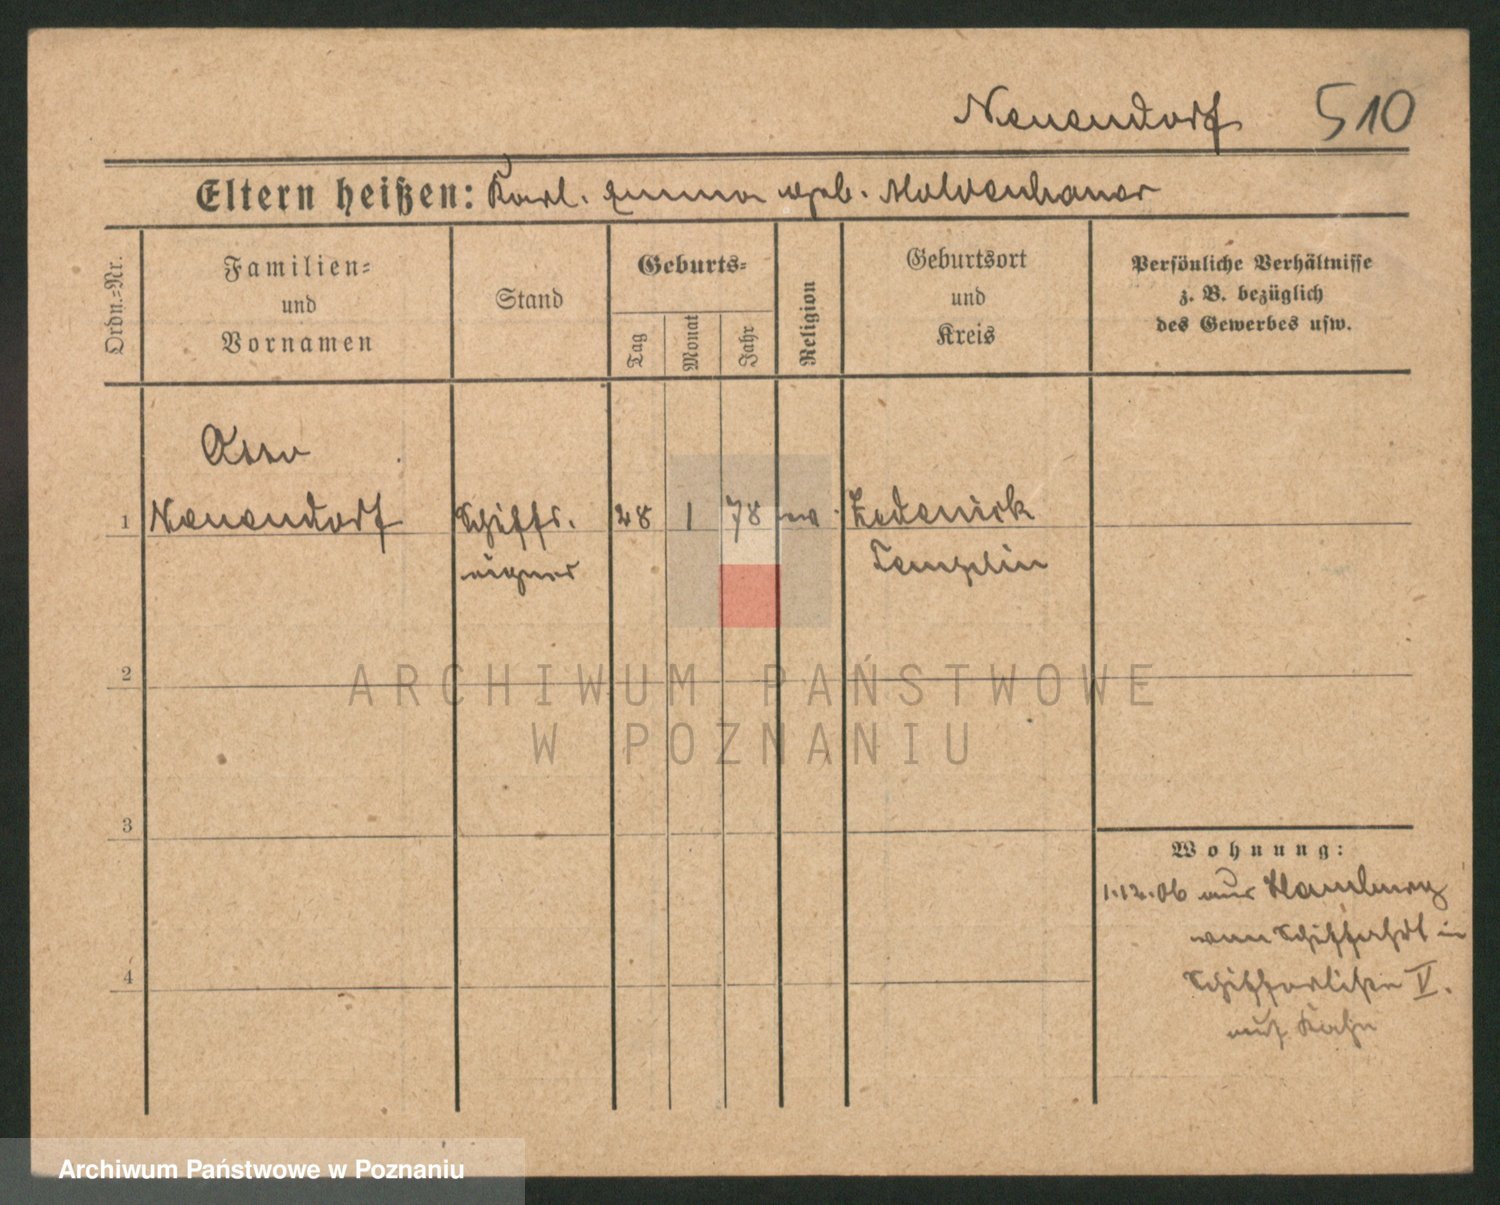 Neuendorf 510
Eltern heißen: Karl. Emma geb. Moldenhauer
Ordn.=Nr.
Familien=
und
Vornamen
Stand
Geburts=
Tag
Monat
Jahr
Religion
Geburtsort
und
Kreis
Persönliche Verhältnisse
z. B. bezüglich
des Gewerbes usw.
Otto
1 Neuendorf Schiffs. 28 1 78 ev. Zedenick
eigner Templin
ARCHIWUM PAŃSTWOWE
W POZNANIU
2
3
Wohnung:
1.12.06 aus Hamburg
Schiffahrt in
4
Schifferliste V.
auf Kahn
Archiwum Państwowe w Poznaniu